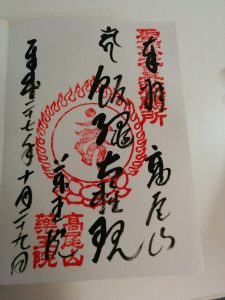 奉拝 高尾山
飯縄大権現
薬王院
平成二十七年十月二十九日
高尾山
薬王院